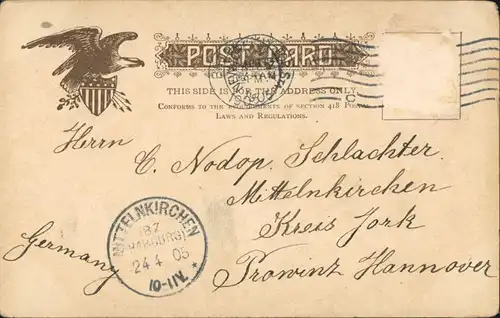 POST CARD
THIS SIDE IS FOR THE ADDRESS ONLY.
CONFORMS TO THE REQUIREMENTS OF SECTION 418 POSTAL
LAWS AND REGULATIONS.
Herrn
C. Nodop. Schlachter.
Mittelnkirchen
Kreis Jork
Prowinz Hannover
Germany
MITTELNKIRCHEN
(BZ
HAMBURG)
24 4 05
10-11V.
*
C